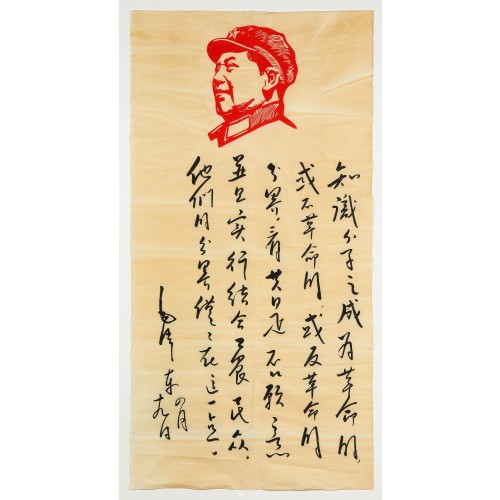 知識分子之成为革命的,
或不革命的,或反革命的
分界,看其是否願意
並且实行结合工農民众。
他们的分界僅々在這一点。
毛泽东
四月